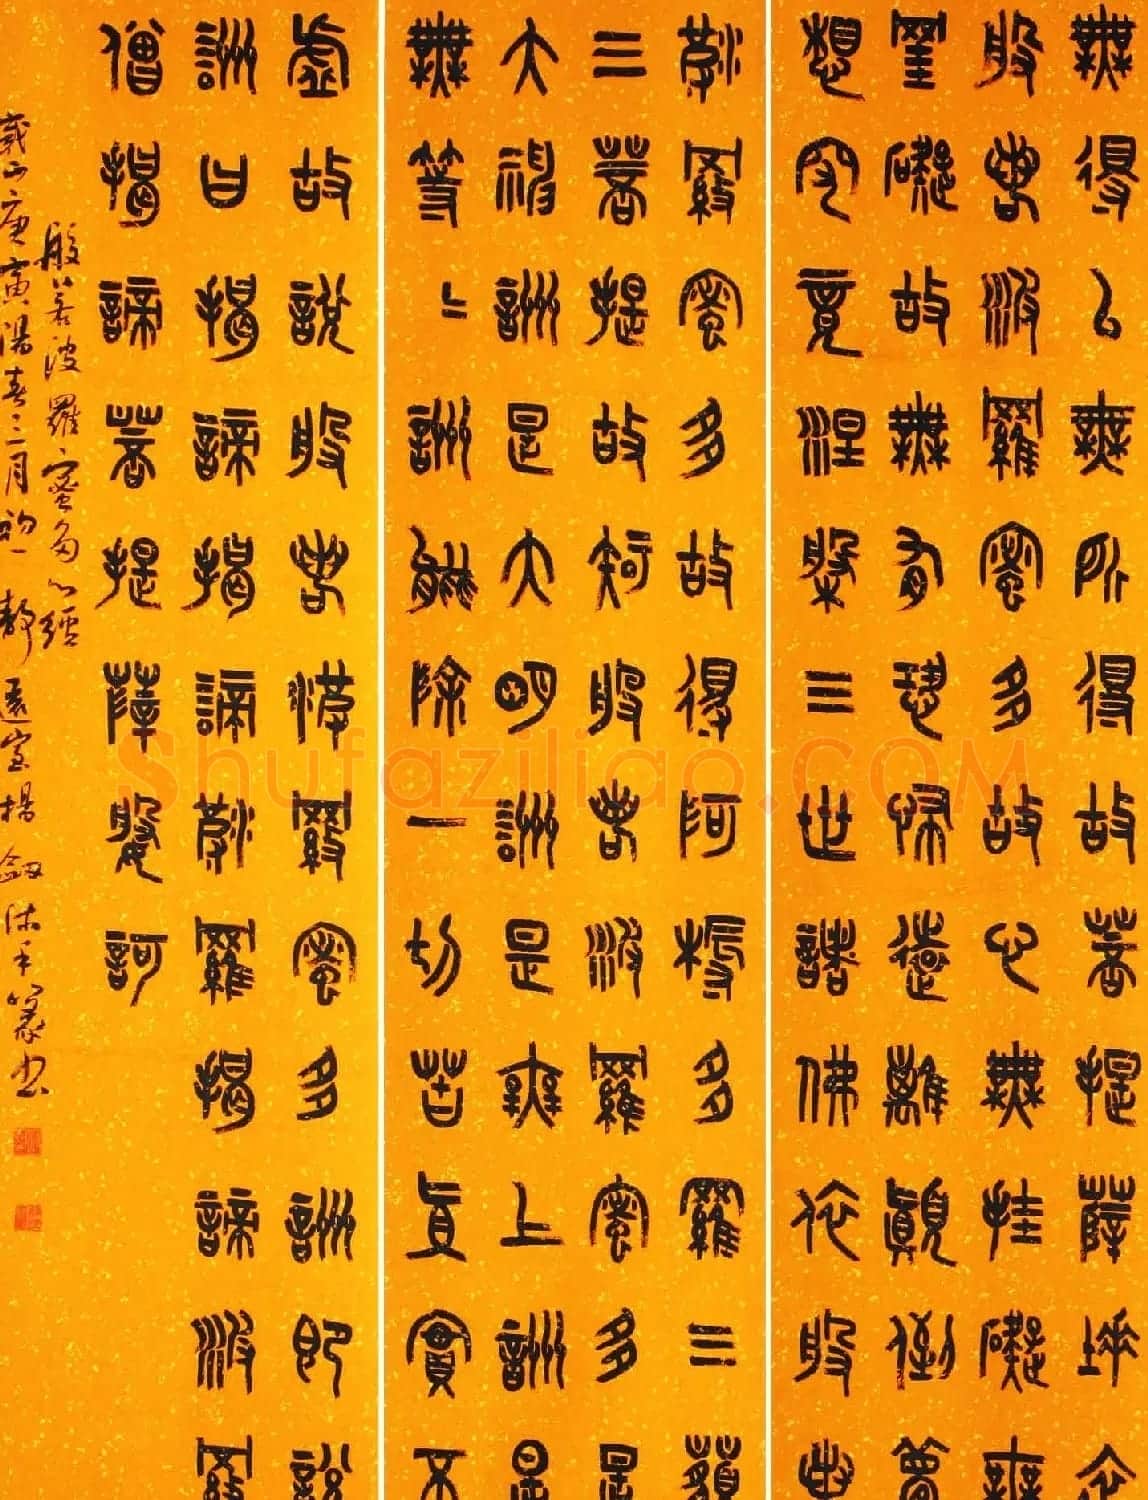 無得以無所得故菩提薩埵依
般若波羅蜜多故心無挂礙無
罣礙故無有恐怖遠離顛倒夢
想究竟涅槃三世諸佛依般若
波羅蜜多故得阿耨多羅三藐
三菩提故知般若波羅蜜多是
大神詶是大明詶是無上詶是
無等等詶能除一切苦真實不
虛故說般若波羅蜜多詶即說
詶曰揭諦揭諦波羅揭諦波羅
僧揭諦菩提薩婆訶
般若波羅蜜多心經
庚寅陽春三月靜遠堂揚劍沐手篆書
Shufaziliao.COM